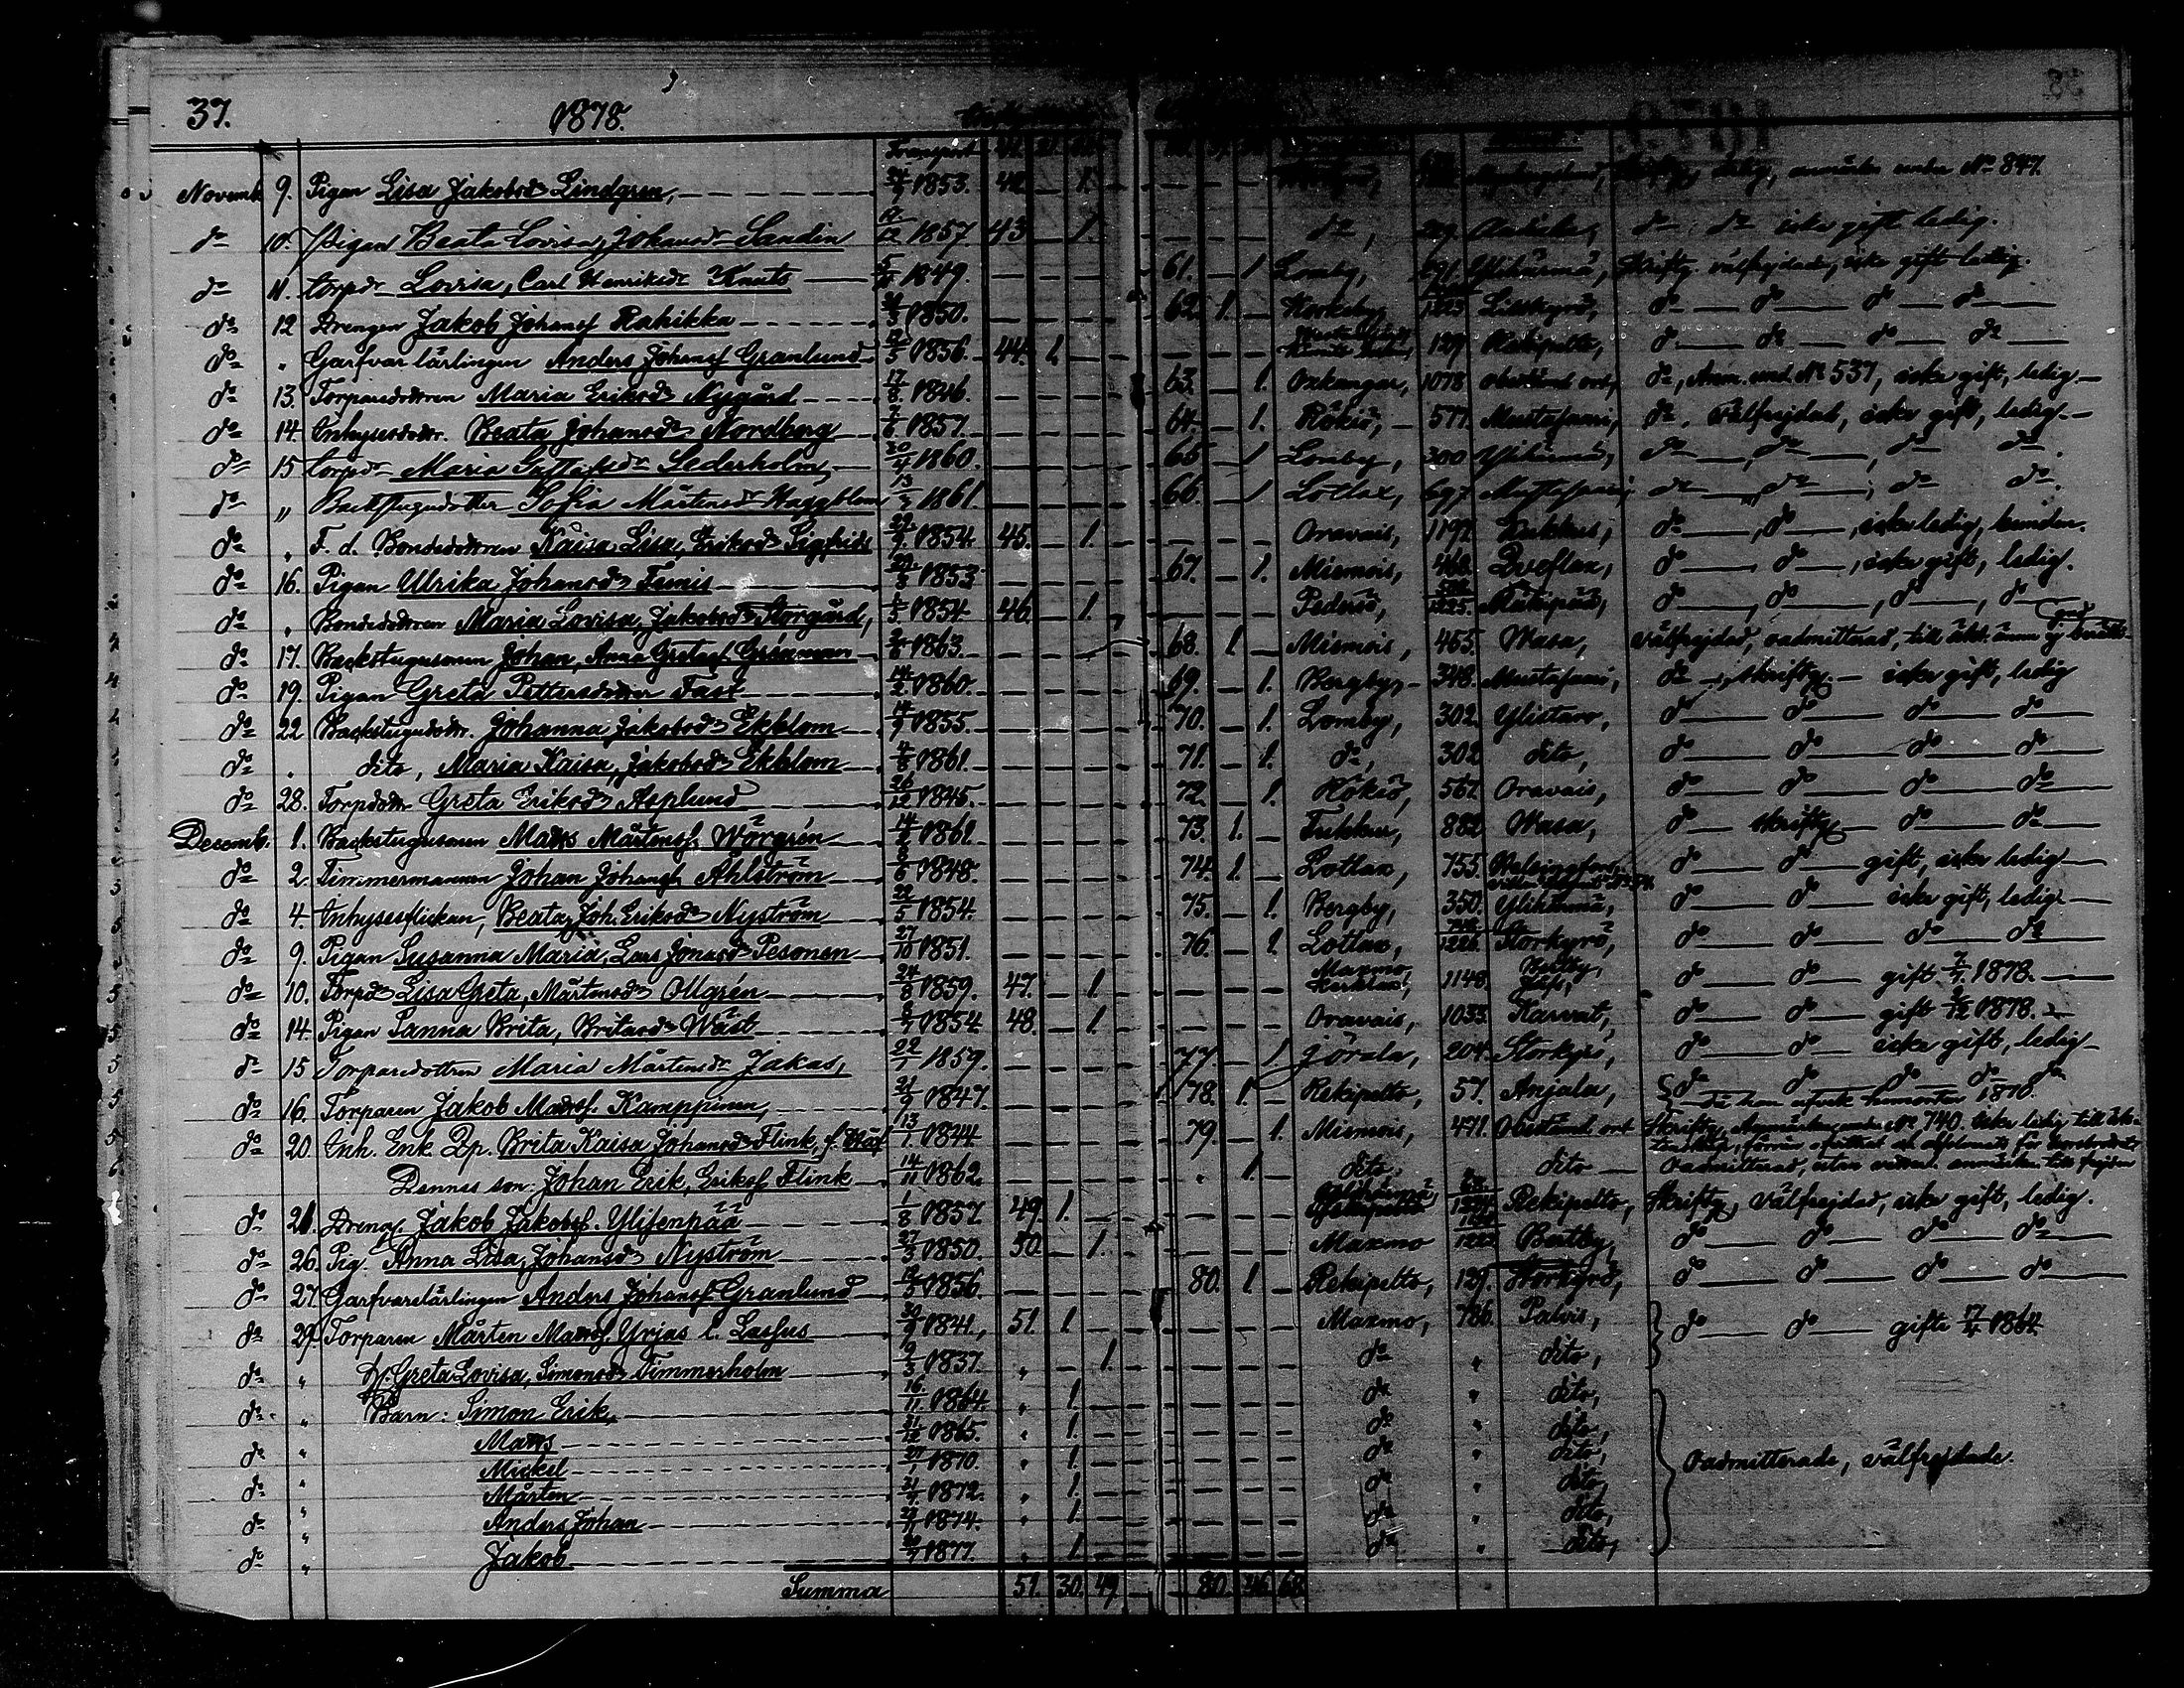 37. 1878.
Transport
Novemb. 9. Pigan Lisa Jakobsdr Lindgren, 1853. 42. 1. ledig, anmärkn. under No 847.
do 10. Pigan Beata Lovisa, Johansdr Sandin 1857. 43 1. do, 219 do do icke gift ledig.
do 11. torpdr Lovisa, Carl Henriksdr Knuts 1849. 61. 1 Lomby, 291. Ylihärmä, Skriftg. välfrejdad, icke gift ledig.
do 12 Drengen Jakob Johansf Rahikka 1850. 62. 1. 1225 do do do do
do " Garfvar lärlingen Anders Johansf Granlund 1856. 44. 1. 129 Rekipelto, do do do do
do 13. Torparedottren Maria Eriksdr Nygård 17/8 1846. 63. 1. Oxkangar, 1078 obestämd ort, do, Anm. und. No 537, icke gift, ledig
do 14. Inhysesdottr. Beata Johansdr Nordberg 1857. 64. 1. Rökiö, 577. Mustasaari, do, Välfrejdad, icke gift, ledig.
do 15 torpdr Maria Gustafsdr Sederholm, 20/4 1860. 65 1 Lomby, 300 Ylihärmä, do do do do
do " Backstugudotter Sofia Mårtensdr Haggblom 1861. 66. 1 Lotlax, 697 Mustasaari, do do do do.
do " F. d. Bondedottren Kaisa Lisa, Eriksdr Sigfrids 1854. 45. 1. Oravais, 1197. do, do, icke ledig, bunden.
do 16. Pigan Ulrika Johansdr Finnis 1853. 67. 1. Miemois, 468. Qveflax, do do, icke gift, ledig.
do " Bondedottren Maria Lovisa, Jakobsdr Storgård, 1854. 46. 1. Pedersö, 1225. Rekipää, do, do, do, do
do 17. Backstugusonen Johan, Anna Gretasf. Grönman 1863. 68. 1. Miemois, 455. Wasa, välfrejdad, oadmitterad, till äkt. ännu ej
do 19. Pigan Greta Pettersdotter Fast 1860. 69. 1. Bergby, 348. Mustasaari, do, skriftg. icke gift, ledig
do 22 Backstugudottr. Johanna Jakobsdr Ekblom 14/7 1855. 70. 1. Lomby, 302. Ylistaro, do do do do
do " dito, Maria Kaisa, Jakobsdr Ekblom 1861. 71. 1. do, 302 dito, do do do do
do 28. Torpdottr Greta Eriksdr Asplund 26/12 1845. 72. 1. Rökiö, 567. Oravais, do do do do
Decemb. 1. Backstugusonen Matts Mårtensf. Wörgrén 1861. 73. 1. Tukkur, 882 Wasa, do skriftg do do
do 2. Timmermannen Johan Johansf. Åhlström 1848. 74. 1. Lotlax, 755. Helsingfors, do do gift, icke ledig
do 4. Inhysesflickan, Beata, Joh. Eriksdr Nyström 1854. 75. 1. Bergby, 350. Ylihärmä, do do icke gift, ledig.
do 9. Pigan Susanna Maria, Lars Jonasdr Pesonen 27/10 1851. 76. 1. Lotlax, 1226. Storkyrö, do do do do
do 10. Torpdr Lisa Greta, Mårtensdr Ollgrén 24/8 1859. 47. 1. Maxmo, 1148. Bertby, do do gift 1878.
do 14. Pigan Sanna Brita, Britasdr Wäst 1854 48. 1. Oravais, 1033. Karvat, do do gift 1878.
do 15 Torparedottren Maria Mårtensdr Jakas, 22/1 1859. 77. 1 Jörala, 204. Storkyrö, do do icke gift, ledig
do 16. Torparen Jakob Mattsf. Kamppinen, 1847. 78. 1. Rekipelto, 57. Anjala, do do do do 1878.
do 20. Inh. Enk. Qp. Brita Kaisa Johansdr Flink, f. 13/1 1844 79. 1. Miemois, 471. Obestämd ort Skriftg. Anmärkn. under No 740. Icke ledig till äkt
Dennes son: Johan Erik, Eriksf Flink 14/11 1862. 1. dito dito Oadmitterad,
do 21. Dreng. Jakob Jakobsf. Ylisenpää 1/8 1857 49. 1. Rekipelto, Skriftg., välfrejdad, icke gift, ledig.
do 26. Pig. Anna Lisa, Johansdr Nyström 27/3 1850. 50. 1. Maxmo 1222 Bertby, do do do do
do 27. Garfvarelärlingen Anders Johansf. Granlund 1856. 80. 1. Rekipelto, 129. Storkyrö, do do do do
do 29. Torparen Mårten Mattsf. Yrjas l. Lassus 1841, 51. 1. Maxmo, 786. Palvis, do do gifte 1864.
do " Greta Lovisa, Simonsdr Timmerholm 9/3 1837. " 1. do " dito,
do " Barn: Simon Erik, 16/11 1864. " 1. do " dito,
Matts 1865. " 1. do " dito,
do " Mickel 1870. " 1. do " dito, Oadmitterade, välfrejdade.
do " Mårten 1872. " 1. do " dito,
do " Anders Johan 1874. " 1. do " dito,
do " Jakob 1877. " 1. do " dito,
Summa 51. 30. 49. 80. 46 68.